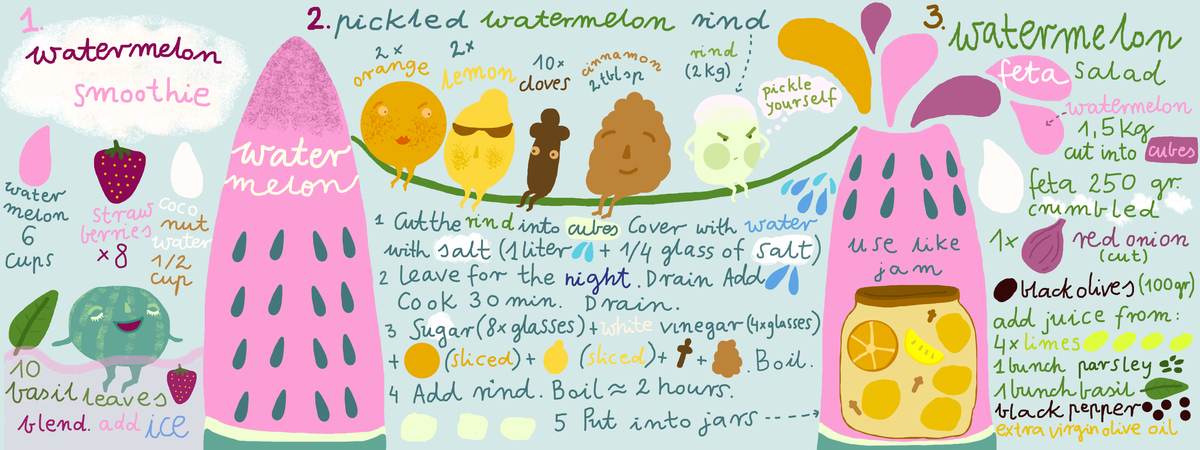 1.
watermelon
smoothie
water
melon
6
cups
straw
berries
x8
coco
nut
water
1/2
cup
10
basil leaves
blend. add ice
water
melon
2. pickled watermelon rind
2x
orange
2x
lemon
10x
cloves
cinnamon
2tblsp
rind
(2kg)
pickle
yourself
1 Cut the rind into cubes Cover with water
with salt (1 liter + 1/4 glass of salt)
2 Leave for the night. Drain Add
Cook 30 min. Drain.
3 Sugar (8x glasses) + white vinegar (4x glasses)
+ (sliced) + (sliced) + + . Boil.
4 Add rind. Boil ≈ 2 hours.
5 Put into jars ---->
use like
jam
3. watermelon
feta salad
watermelon
1,5kg
cut into cubes
feta 250 gr.
crumbled
1x red onion
(cut)
black olives (100gr)
add juice from:
4x limes
1 bunch parsley
1 bunch basil
black pepper
extra virgin olive oil